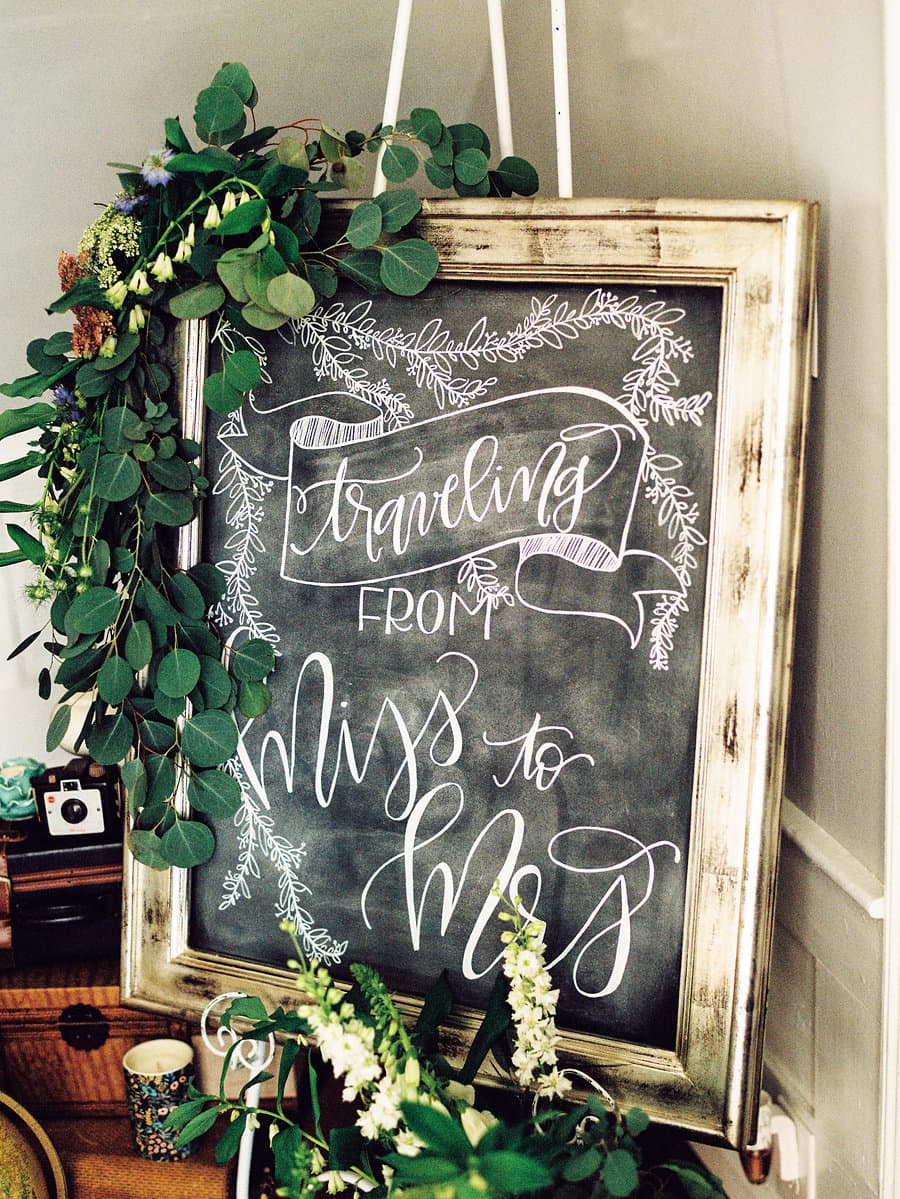 traveling
FROM
Miss to
Mrs